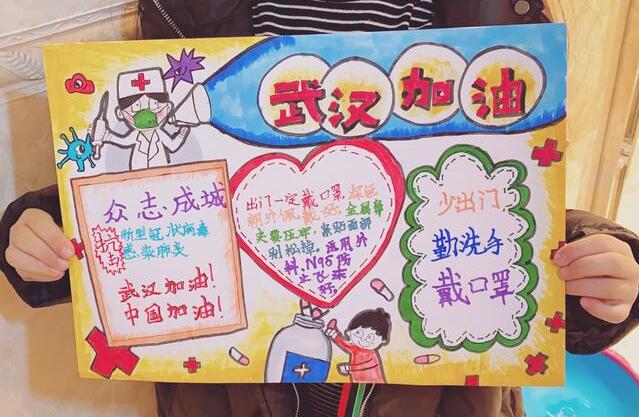 武汉加油
众志成城
抗击
新型冠状病毒
感染肺炎
武汉加油！
中国加油！
出门一定戴口罩，深色
朝外佩戴好，金属鼻
夹要压牢，紧贴面部
别松掉，医用外
科，N95防
止飞沫
好
少出门
勤洗手
戴口罩